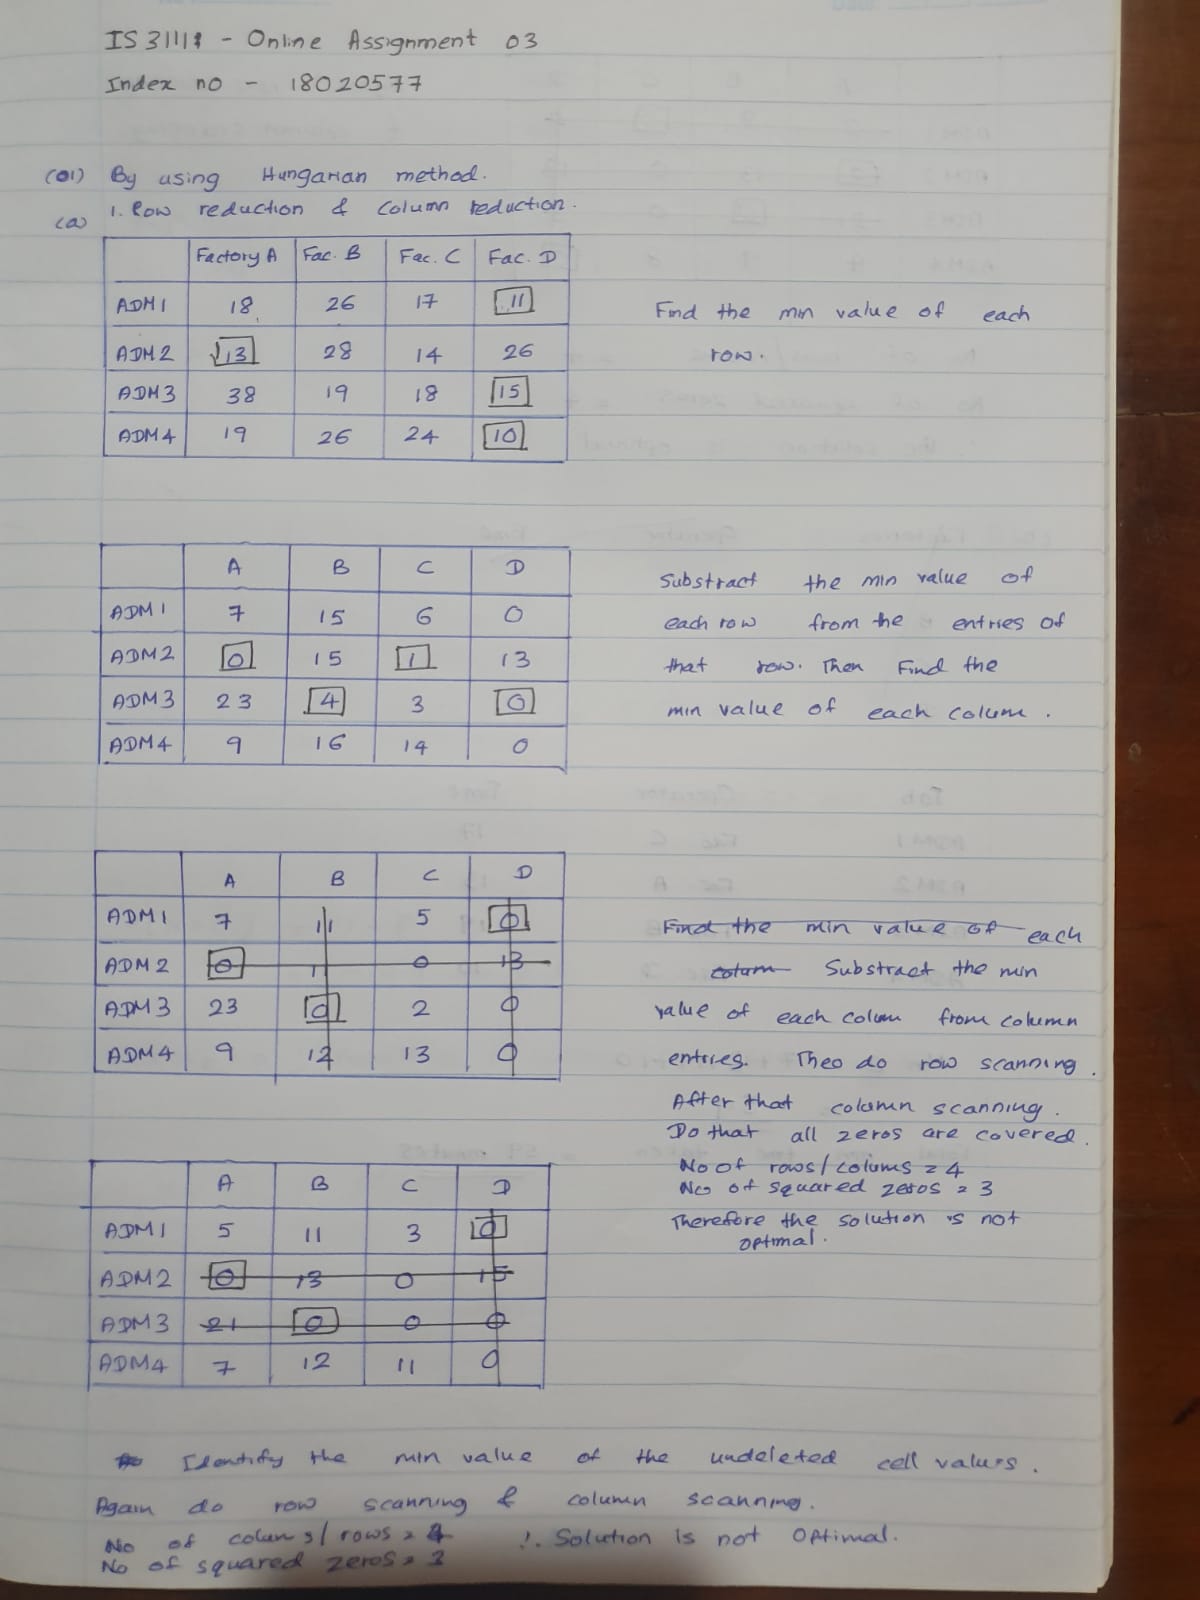 IS 3111 - Online Assignment 03
Index no - 18020577
(01) By using Hungarian method.
(a) 1. Row reduction & Column reduction.
Factory A Fac. B Fac. C Fac. D
ADM1 18 26 17 11
ADM2 13 28 14 26
ADM3 38 19 18 15
ADM4 19 26 24 10
Find the min value of each
row.
A B C D
ADM1 7 15 6 0
ADM2 0 15 1 13
ADM3 23 4 3 0
ADM4 9 16 14 0
Substract the min value of
each row from the entries of
that row. Then Find the
min value of each colume.
A B C D
ADM1 7 11 5 0
ADM2 0 11 0 13
ADM3 23 0 2 0
ADM4 9 12 13 0
Find the min value of each
colum Substract the min
value of each colum from column
entries. Then do row scanning.
After that column scanning.
Do that all zeros are covered.
No of rows/colums = 4
No of squared zeros = 3
Therefore the solution is not
optmal.
A B C D
ADM1 5 11 3 0
ADM2 0 13 0 15
ADM3 21 0 0 0
ADM4 7 12 11 0
Identify the min value of the undeleted cell values.
Again do row scanning & column scanning.
No of colums/rows = 4 ∴ Solution is not optimal.
No of squared zeros = 3